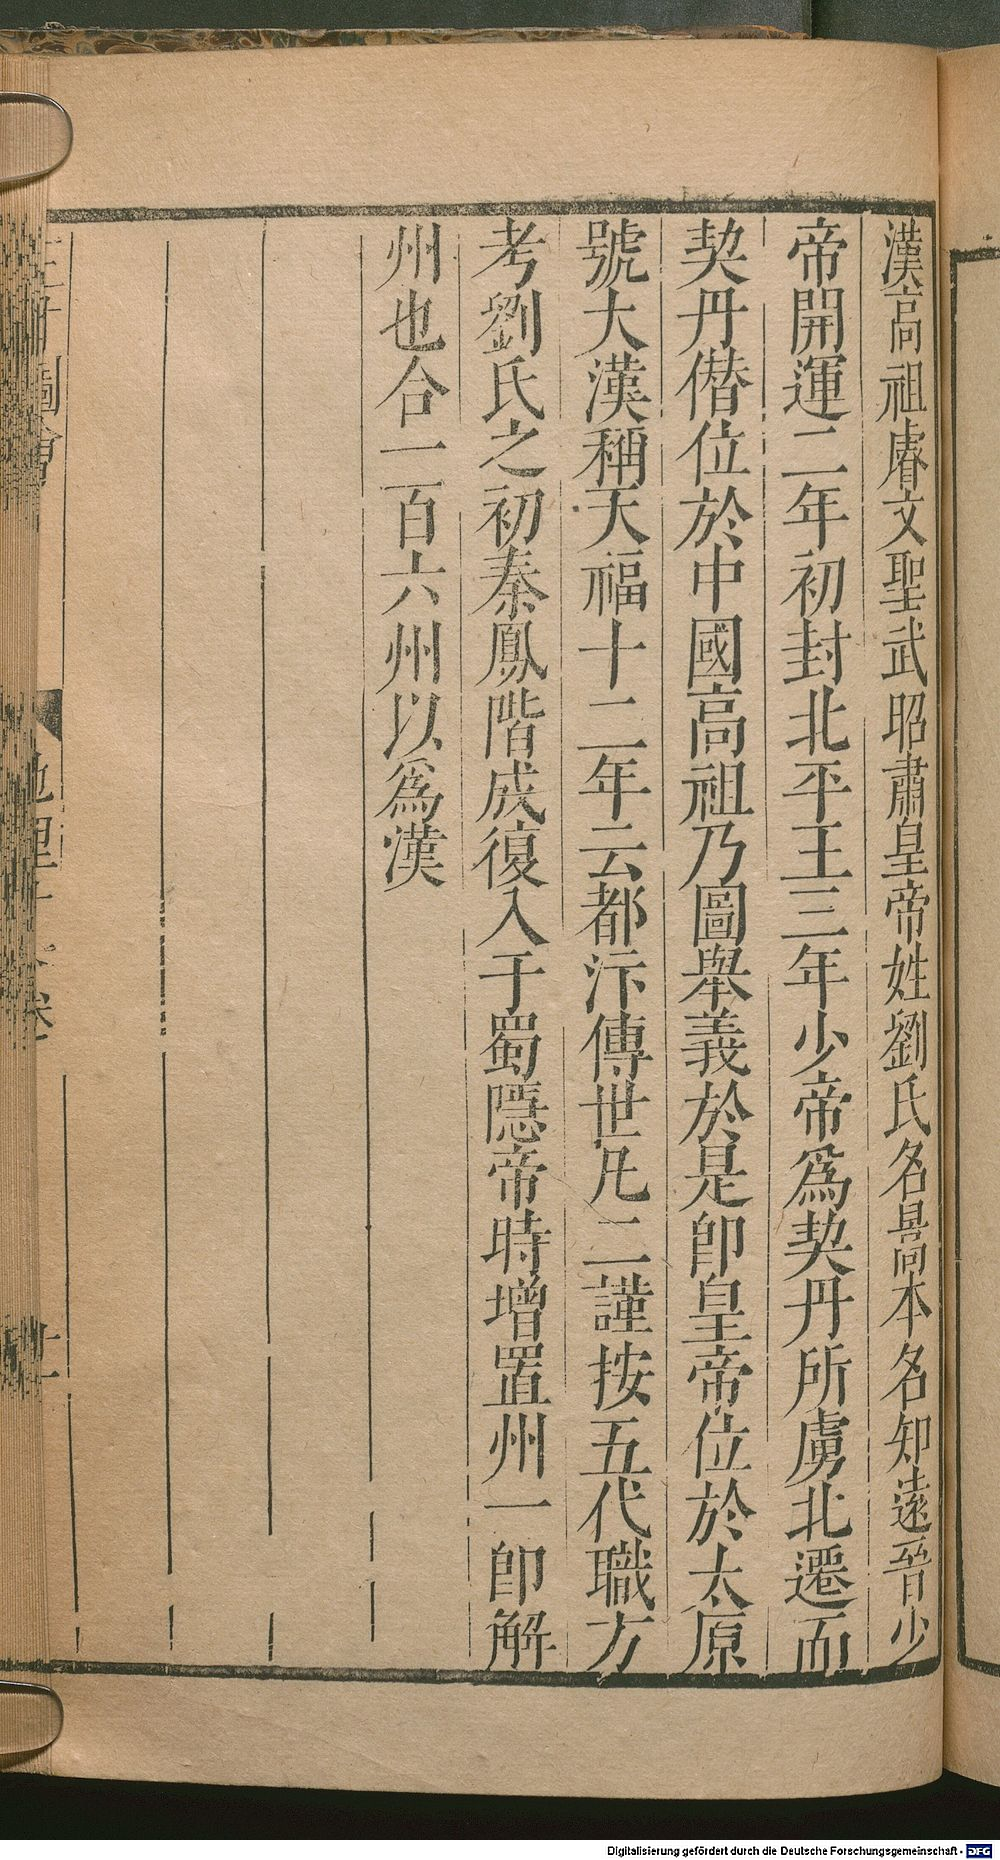 漢高祖睿文聖武昭肅皇帝姓劉氏名暠本名知遠晉少
帝開運二年初封北平王三年少帝為契丹所虜北遷而
契丹僭位於中國高祖乃圖舉義於是即皇帝位於太原
號大漢稱天福十二年云都汴傳世凡二謹按五代職方
考劉氏之初秦鳳階成復入于蜀隱帝時增置州一即解
州也合一百六州以為漢
圖會
地理十 卷
Digitalisierung gefördert durch die Deutsche Forschungsgemeinschaft - DFG